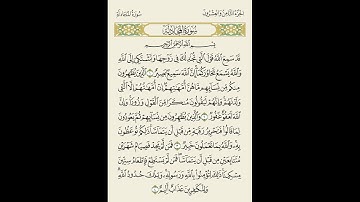 الجزء الثامن والعشرون سورة المجادلة
سورة المجادلة
بسم الله الرحمن الرحيم
قد سمع الله قول التي تجادلك في زوجها وتشتكي إلى الله
والله يسمع تحاوركما إن الله سميع بصير ١ الذين يظاهرون
منكم من نسائهم ما هن أمهاتهم إن أمهاتهم إلا الـٰٓـي
ولدنهم وإنهم ليقولون منكرا من القول وزورا وإن الله
لعفو غفور ٢ والذين يظاهرون من نسائهم ثم يعودون
لما قالوا فتحرير رقبة من قبل أن يتماسا ذلكم توعظون
به والله بما تعملون خبير ٣ فمن لم يجد فصيام شهرين
متتابعين من قبل أن يتماسا فمن لم يستطع فإطعام ستين
مسكينا ذلك لتؤمنوا بالله ورسوله وتلك حدود الله
وللكافرين عذاب أليم ٤